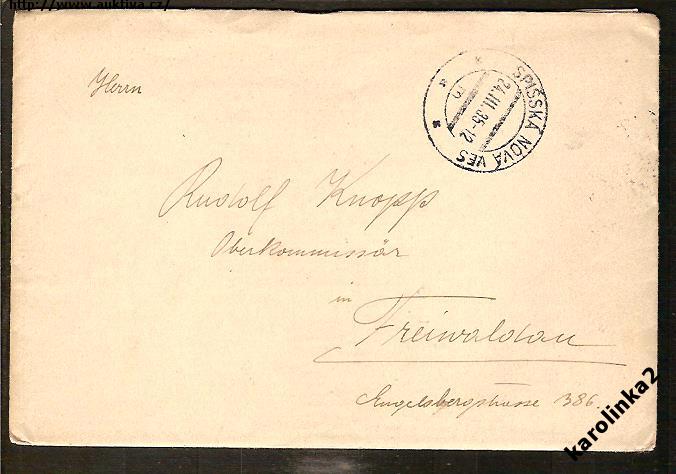 http://www.auktiva.cz/
Herrn
SPIŠSKÁ NOVÁ VES
24.III.35-12
Rudolf Knopp
Oberkommissär
in
Freiwaldau
Engelsbergstrasse 386.
karolinka2